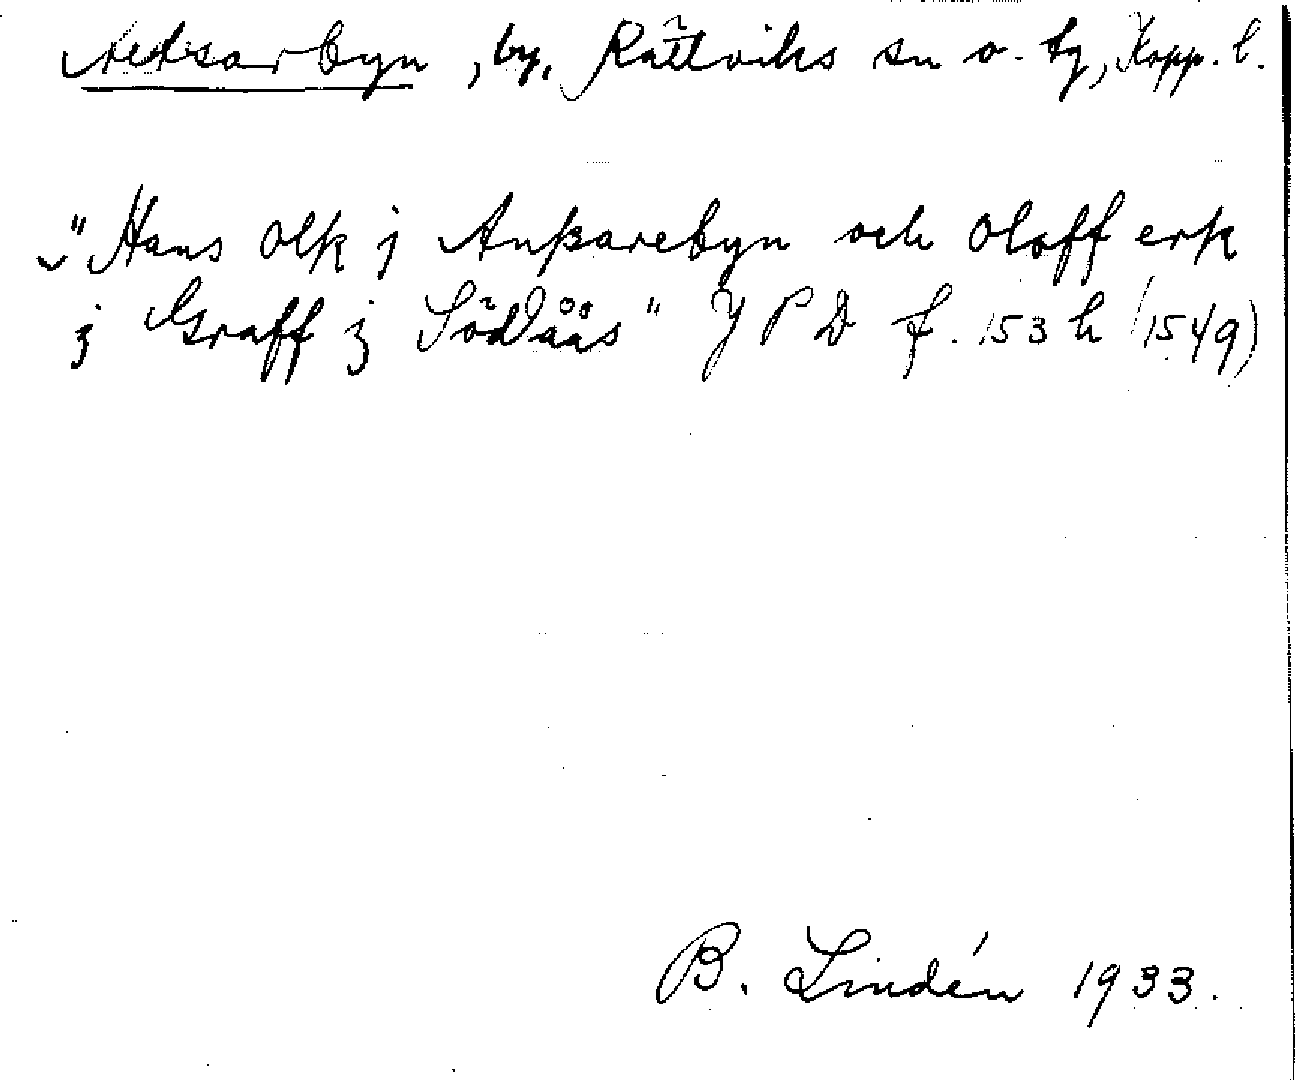 Altsarbyn, by, Rättviks sn o. tg, Kopp. l.
"Hans olk j Anßarebyn och Oloff erk
j Graff j Södåås" J P D f. 153 h (1549)
B. Lindén 1933.